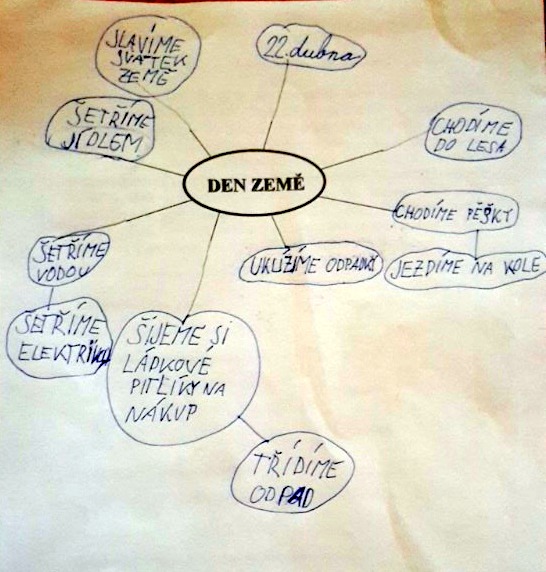 SLAVÍME
SVÁTEK
ZEMĚ
22. dubna
ŠETŘÍME
JÍDLEM
CHODÍME
DO LESA
DEN ZEMĚ
CHODÍME PĚŠKY
JEZDÍME NA KOLE
UKLÍZÍME ODPADKY
ŠETŘÍME
VODOU
ŠETŘÍME
ELEKTŘINU
ŠIJEME SI
LÁDKOVÉ
PITLÍKY NA
NÁKUP
TŘÍDÍME
ODPAD